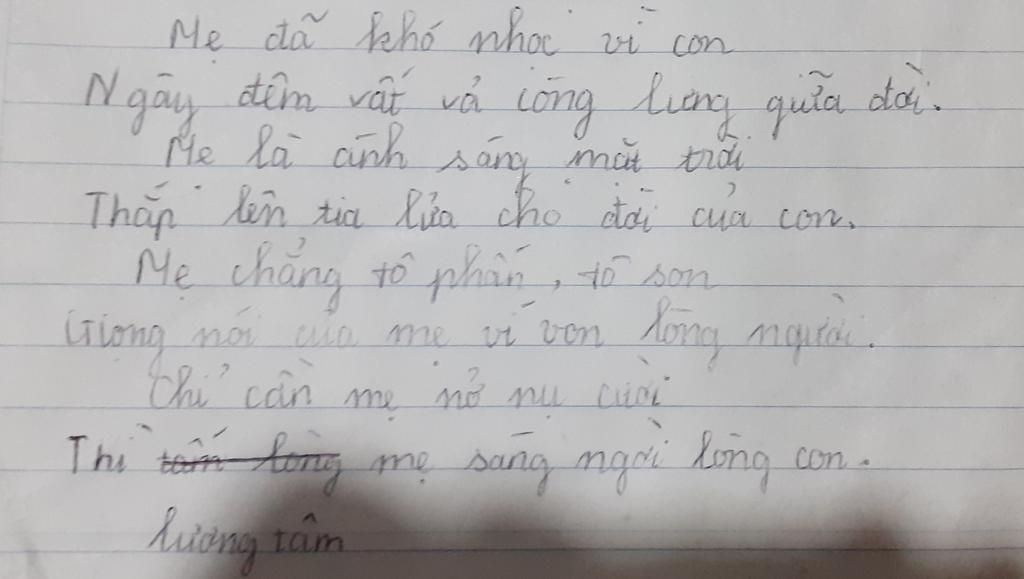 Mẹ đã khó nhọc vì con
Ngày đêm vất vả còng lưng giữa đời.
Mẹ là ánh sáng mặt trời
Thắp lên tia lửa cho đời của con.
Mẹ chẳng tô phấn, tô son
Giọng nói của mẹ ví von lòng người.
Chỉ cần mẹ nở nụ cười
Thì tấm lòng mẹ sáng ngời lòng con.
lương tâm